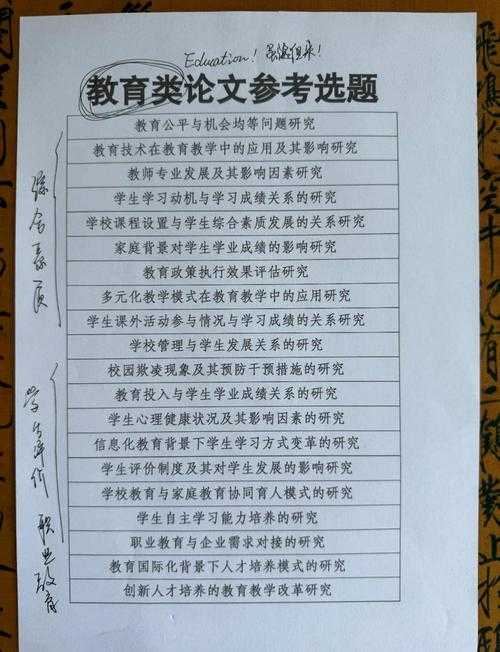 Education！虽迟但来！
教育类论文参考选题
教育公平与机会均等问题研究
教育技术在教育教学中的应用及其影响研究
教师专业发展及其影响因素研究
学生学习动机与学习成绩关系的研究
学校课程设置与学生综合素质发展的关系研究
家庭背景对学生学业成绩的影响研究
教育政策执行效果评估研究
多元化教学模式在教育教学中的应用研究
学生课外活动参与情况与学习成绩的关系研究
学校管理与学生发展关系的研究
校园欺凌现象及其预防干预措施的研究
教育投入与学生学业成绩关系的研究
学生心理健康状况及其影响因素的研究
信息化教育背景下学生学习方式变革的研究
学生评价制度及其对学生发展的影响研究
学校教育与家庭教育协同育人模式的研究
学生自主学习能力培养的研究
职业教育与企业需求对接的研究
教育国际化背景下人才培养模式的研究
创新人才培养的教育教学改革研究
综合素质
学生评价
职业教育